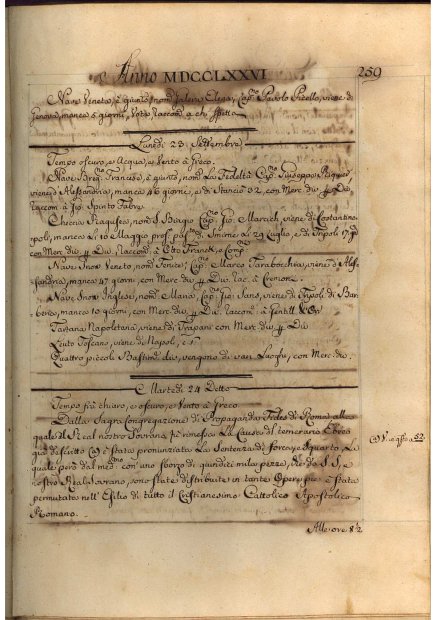 Anno MDCCLXXVI
259
Nave Veneta, è giunta, nom. Valerio Elena, Cap.no Pavolo Picello, viene di
Genova, manca 5 giorni, Voto, Raccom. a ch. Spetta
Lunedì 23, Settembre
Tempo oscuro, e Acqua, e Vento à Greco.
Nave Brig. Francese, è giunta, nom. La Fedeltà Cap.no Giuseppe
viene d'Alessandria, manca 46 giorni, e di Stancio 32, con Merc. div. p. Div.
Raccom. à Gio. Spirito Fabre
Checia Ragusea, nom. S. Biagio Cap.no Gio. Marsich, viene di Costantino-
poli, manca li 10 Maggio pross. pas.to di Smirne li 29 Luglio, e di Tripoli 17 g.
con Merc. div. p. Div. Raccom. à Otto Franck, e Comp.
Nave Snow Veneto nom. Tenite, Cap.no Marco Tarabocchia, viene di Ales-
sandria, manca 47 giorni, con Merc. div. p. Div. Rac. à Cremone
Nave Snow Inglese, nom. Maria Cap.no Gio. Sans, viene di Tripoli di Bar-
beria, manca 10 giorni, con Merc. div. p. Div. Raccom. à Gentill.
Tartana Napoletana, viene di Trapani con Merc. div. p. Div.
Leuto Toscano, viene di Napoli,
Quattro piccoli Bastim. div. vengono di vari Luoghi, con Merc. div.
E Martedì 24 Detto
Tempo frà chiaro, e oscuro, e Vento à Greco
Dalla Sagra Congregazione di Propaganda Fedes di Roma alla
quale dal Real nostro Sovrano fù rimessa La Causa del temerario Ebreo
quà descritto @ è stata pronunziata La Sentenza di forca, e Squarto, La
quale però dal med.mo con uno sborzo di giundici mila pezze, che da S. S., e
nostro Real Sovrano, sono state distribuite in tante Opere pie è stata
permutata nell'Esilio di tutto il Cristianesimo Cattolico Apostolico
Romano.
@ V. a q.sto a 52.
Alle ore 8 1/2